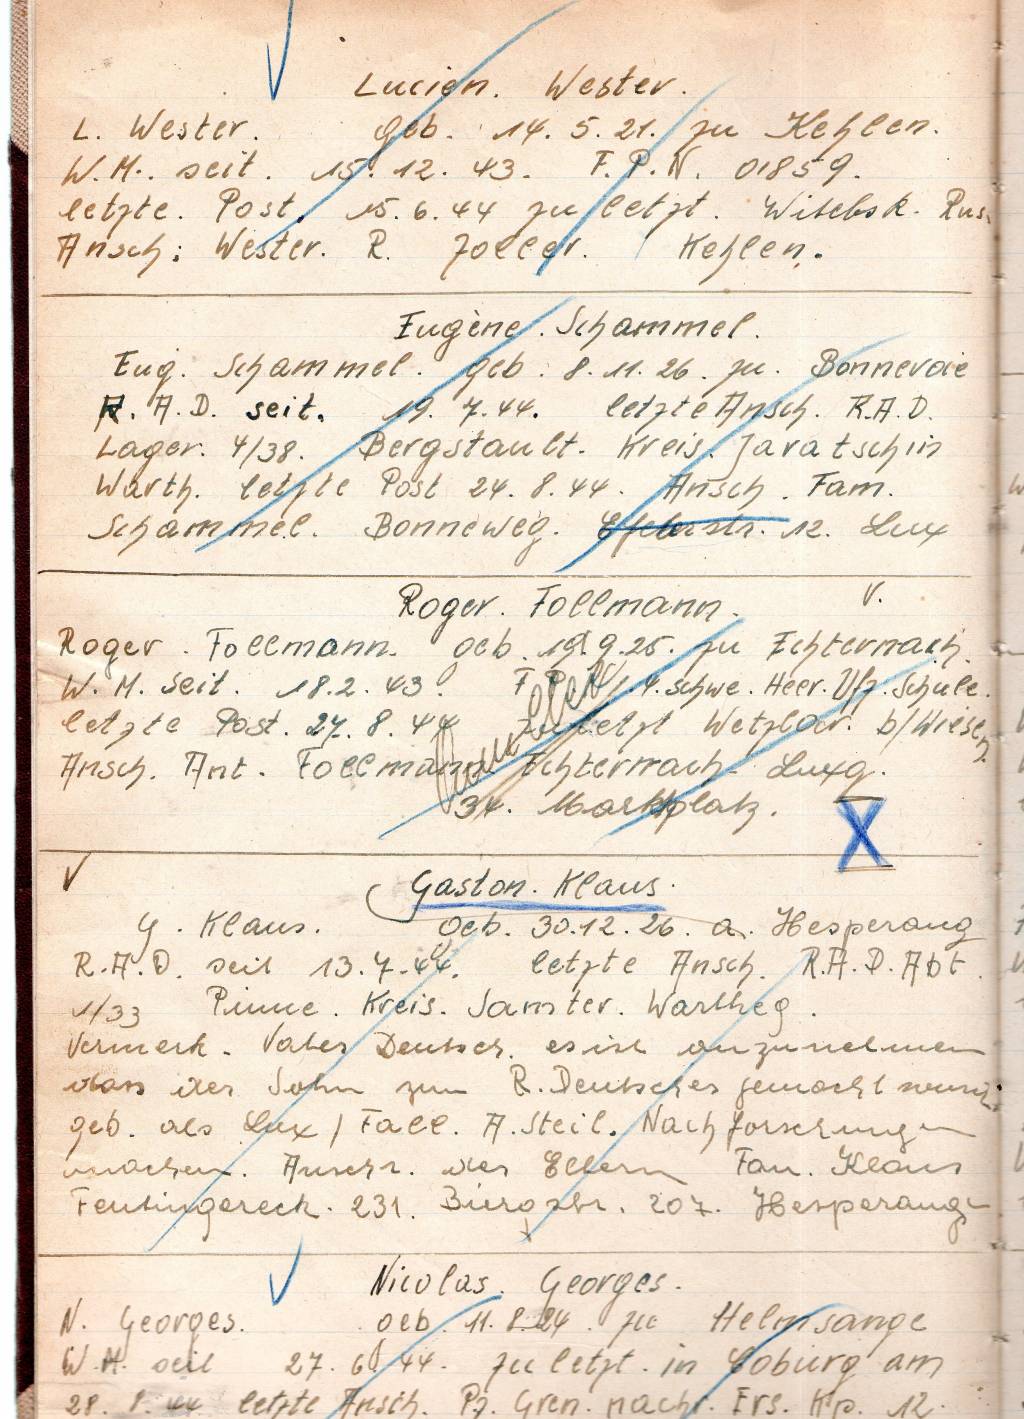 Lucien. Wester.
L. Wester. geb. 14. 5. 21. zu Kehlen.
W.M. seit. 15. 12. 43. F.P.N. 01859.
letzte. Post. 15. 6. 44 zu letzt. Witebsk. Rus.
Ansch: Wester. R. Zoller. Kehlen.
Eugène. Schammel.
Eug. Schammel. geb. 8. 11. 26. zu. Bonnevoie
R. A. D. seit. 19. 7. 44. letzte Ansch. R.A.D.
Lager. 4/38. Bergstault. Kreis. Jaratschin
Warth. letzte Post 24. 8. 44. Ansch. Fam.
Schammel. Bonneweg. 12. Lux
Roger. Follmann. V.
Roger. Follmann. geb. 19. 9. 25. zu Echternach.
W. M. seit. 18. 2. 43. schwe. Heer. Ufz. Schule.
letzte Post. 27. 8. 44 zuletzt Wetzlar. b/
Ansch. Ant. Follmann Echternach Luxg.
34. Marktplatz.
V Gaston. Klaus.
G. Klaus. geb. 30.12.26. a. Hesperang
R.A.D. seit 13.7.44. letzte Ansch. R.A.D. Abt.
1/33 Pinne. Kreis. Samter. Wartheg.
Vermerk. Vater Deutsch. es ist anzunehmen
dass der Sohn zum R.Deutschen gemacht
geb. als Lux / Fall. A.Steil. Nachforschungen
machen. Anschr. der Eltern Fam. Klaus
231. 207. Hesperange
Nicolas. Georges.
N. Georges. geb. 11. 8. 24. zu Helmsange
W.M. seit 27. 6. 44. zuletzt. in Coburg am
28. 8. 44 letzte Ansch. Pz. Gren. nachr. Ers. Kp. 12.